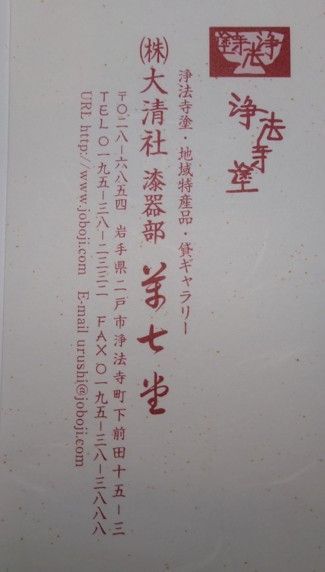 浄法寺塗
浄法寺塗
浄法寺塗・地域特産品・貸ギャラリー
㈱大清社 漆器部
〒〇二八－六八五四 岩手県二戸市浄法寺町下前田十五－三
TEL〇一九五－三八－二三三二 FAX〇一九五－三八－三八八八
URL http://www.joboji.com E-mail urushi@joboji.com